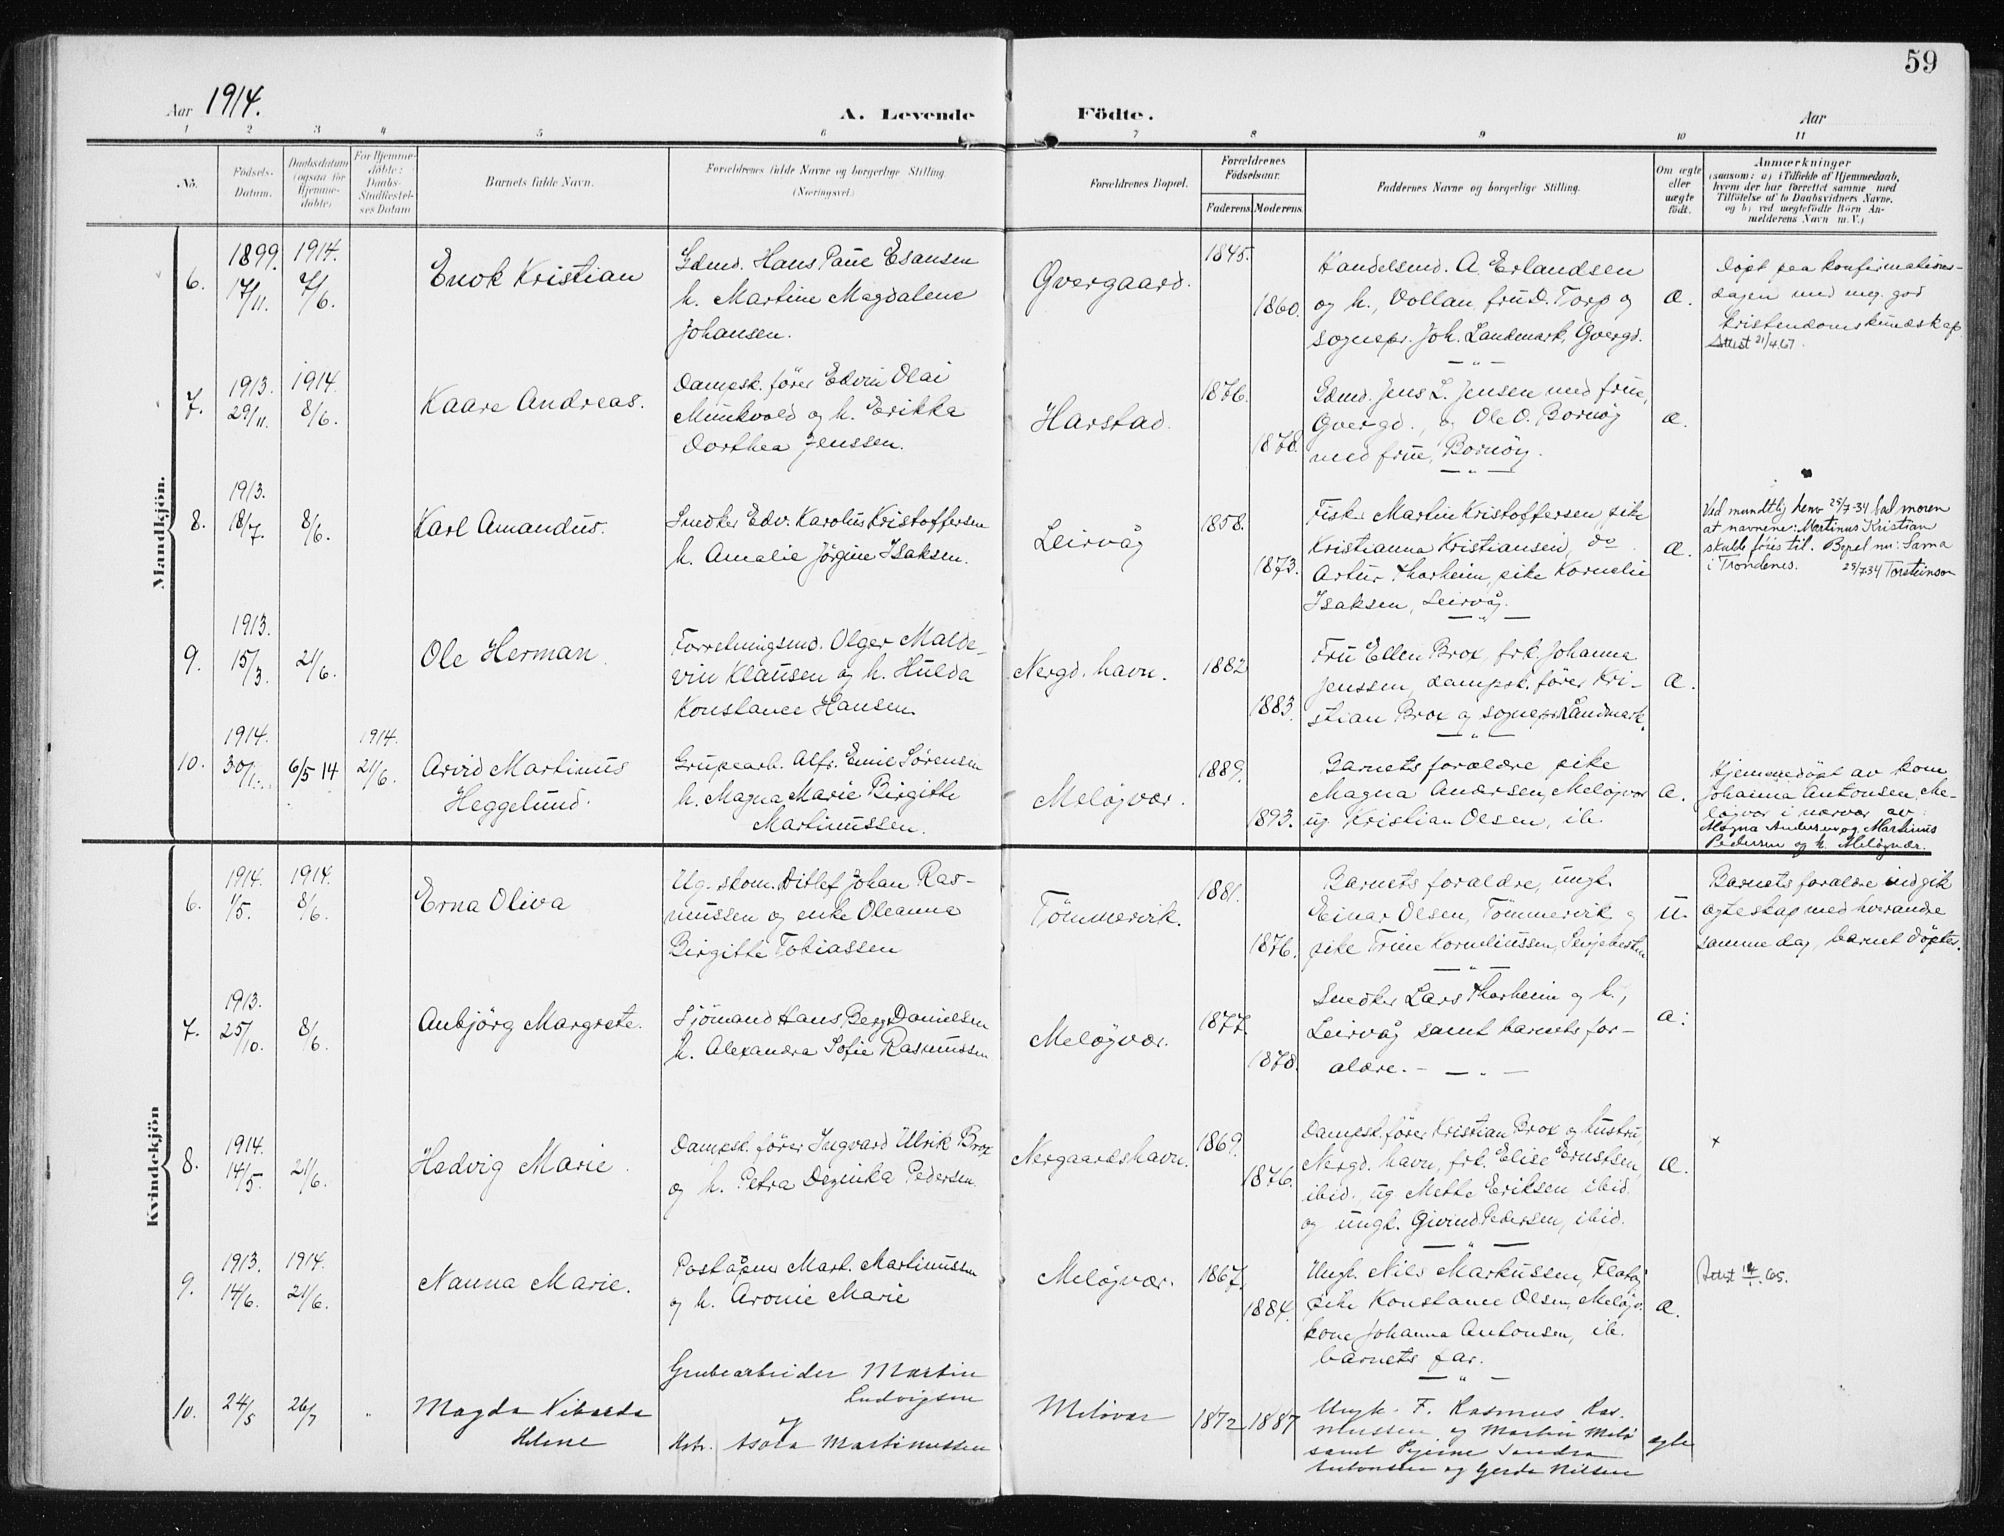 59
Aar 1914.
A. Levende Födte.
Aar
1 2 3 4 5 6 7 8 9 10 11
No.
Födsels-Datum.
Daabsdatum (ogsaa for Hjemme-döbte)
For Hjemme-döbte: Daabs-Stadfæstel-ses Datum
Barnets fulde Navn.
Forældrenes fulde Navne og borgerlige Stilling. (Næringsvei.)
Forældrenes Bopæl.
Forældrenes Födselsaar.
Faderens. Moderens.
Faddernes Navne og borgerlige Stilling.
Om ægte eller uægte födt.
Anmærkninger
(saasom: a) i Tilfælde af Hjemmedaab,
hvem der har forrettet samme med
Tilföielse af to Daabsvidners Navne,
og b) ved uægtefödte Börn An-
melderens Navn m. V.)
Mandkjön.
6.
1899. 17/11.
1914. 7/6.
Enok Kristian
Gdmd. Hans Paue Esansen
h. Martine Magdalene
Johansen.
Qvergaard.
1845.
1860.
Handelsmd. A. Erlandsen
og h., Vollan, fru D. Torp og
sognepr. Joh. Landmark, Qvergd.
æ.
Døpt paa konfirmations-
dagen med meg. god
kristendomskundskap
Attest 21/4.67.
7.
1913. 29/11.
1914. 8/6.
Kaare Andreas.
Dampsk. fører Edvin Olai
Munkvold og h. Erikka
Dorthea Jenssen.
Harstad.
1876.
1878.
Gdmd. Jens L. Jensen med frue,
Qvergd., og Ole O. Bornøy
med frue, Bornöy.
æ.
8.
1913. 18/7.
8/6.
Karl Amandus.
Snedker Edv. Karolius Kristoffersen
h. Amalie Jörgine Isaksen.
Leirvåg
1858.
1873.
Fisker Martin Kristoffersen, pike
Kristianna Kristiansen, do
Artur Tharheim, pike Kornelie
Isaksen, Leirvåg.
æ.
Ved mundtlig henv 25/7-34 bad moren
at navnene: Martinus Kristian
skulde föies til. Bopel nu: Sama
i Trondenes. 25/7.34 Torsteinson
9.
1913. 15/3.
21/6.
Ole Herman.
Forretningsmd. Olger Malde-
vin Klausen og h. Hulda
Konstance Hansen.
Nergd. havn.
1882
1883.
Fru Ellen Brox, frk. Johanna
Jenssen, dampsk. fører Kri-
stian Brox og sognepr. Landmark.
æ.
10.
1914. 30/1.
6/5 14
1914. 21/6.
Arvid Martinus
Heggelund.
Grupearb. Alfr. Emil Sørensen
h. Magna Marie Birgitte
Martinussen.
Meløjvær.
1889.
1893.
Barnets forældre, pike
Magna Andersen, Meløjvær
ug. Kristian Olsen, ib.
æ.
Hjemmedöpt av kone
Johanna Antonsen, Me-
løjvær i nærvær av
Magna Andersen og Martinus
Pedersen og h. Meløjvær.
Kvindekjön
6.
1914. 1/5.
1914. 8/6.
Erna Oliva
Ug. skom. Ditlef Johan Ras-
mussen og enke Oleanna
Birgitte Tobiassen
Tömmervik.
1881.
1876.
Barnets forældre, ungk.
Einar Olsen, Tömmervik og
pike Trine Korneliussen,
u.
Barnets forældre indgik
egteskap med hverandre
samme dag, barnet döptes.
7.
1913. 25/10.
8/6.
Anbjörg Margrete.
Sjömand Hans Berg Danielsen
h. Alexandra Sofie Rasmussen
Meløjvær.
1877.
1878.
Snedker Lars Tharheim og h.,
Leirvåg samt barnets for-
ældre.
æ:
8.
1914. 14/5.
21/6.
Hedvig Marie.
Dampsk. fører Ingvard Ulrik Brox
og h. Petra Deginka Pedersen.
Nergaardshavn.
1869.
1876.
Dampsk. fører Kristian Brox og hustru,
Nergd. havn, frk. Elise Ernstsen,
ibid., ug. Mette Eriksen, ibid.
og ungk. Øivind Pedersen, ibid.
æ.
x
9.
1913. 14/6.
1914. 21/6.
Nanna Marie.
Poståpner Mart. Martinussen
og h. Aronie Marie
Meløjvær.
1867.
1884.
Ungk. Nils Markussen, Flatøj
pike Konstance Olsen, Meløjv.
kone Johanna Antonsen, ib.
barnets far.
æ.
Attest 65.
10.
24/5
26/7
"
Magda Nikolda
Helene
Grubearbeider Martin
Ludvigsen
og
Hstr. Asora Martinussen
Meløvær
1872
1887
Ungk. F. Rasmus Ras-
mussen og Martin Melö
samt Pigerne Sandra
Antonsen og Gerda Nilsen
egte